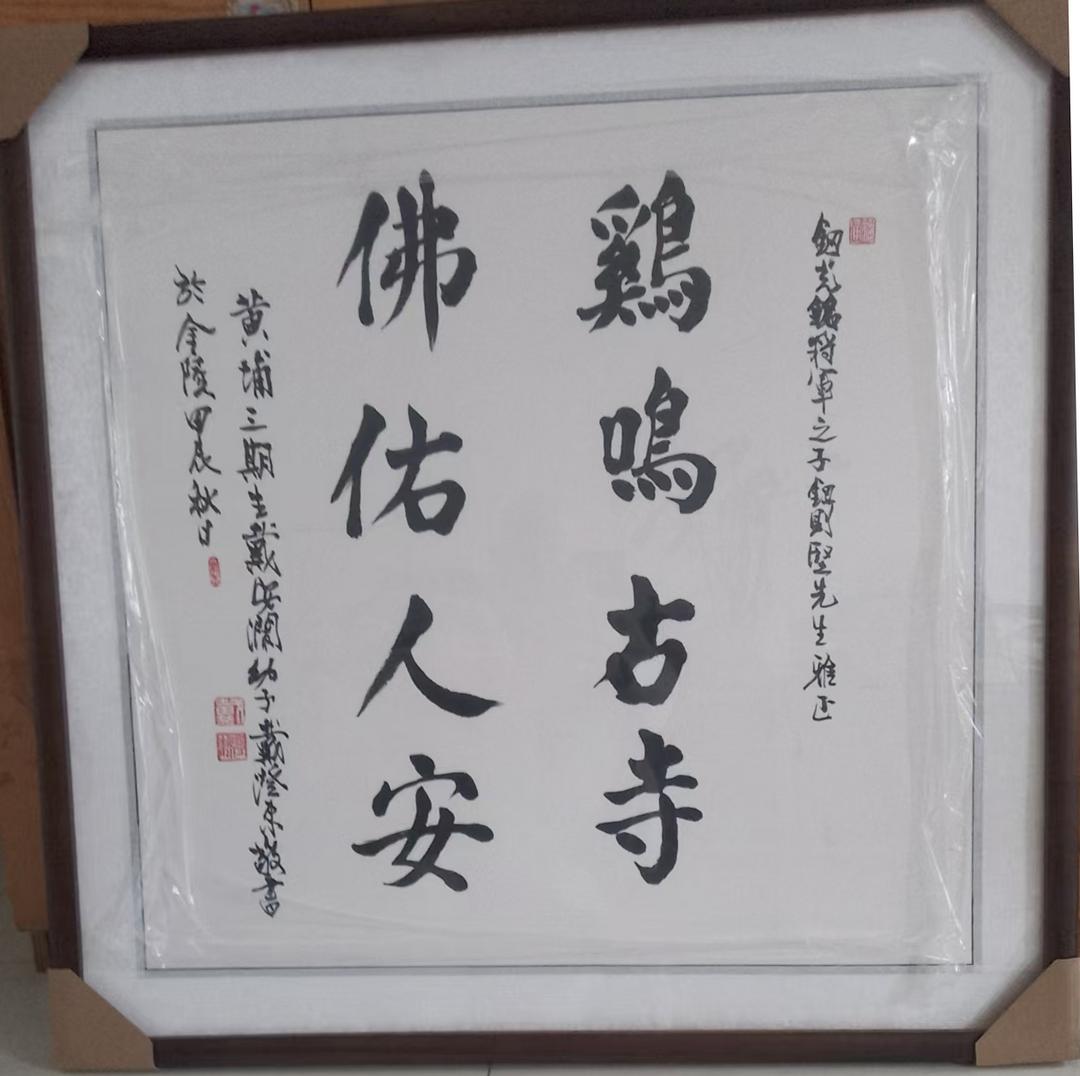 鈕先銘將軍之子鈕則堅先生雅正
鷄鳴古寺
佛佑人安
黄埔三期生戴安瀾幼子戴澄東敬書
於金陵甲辰秋日